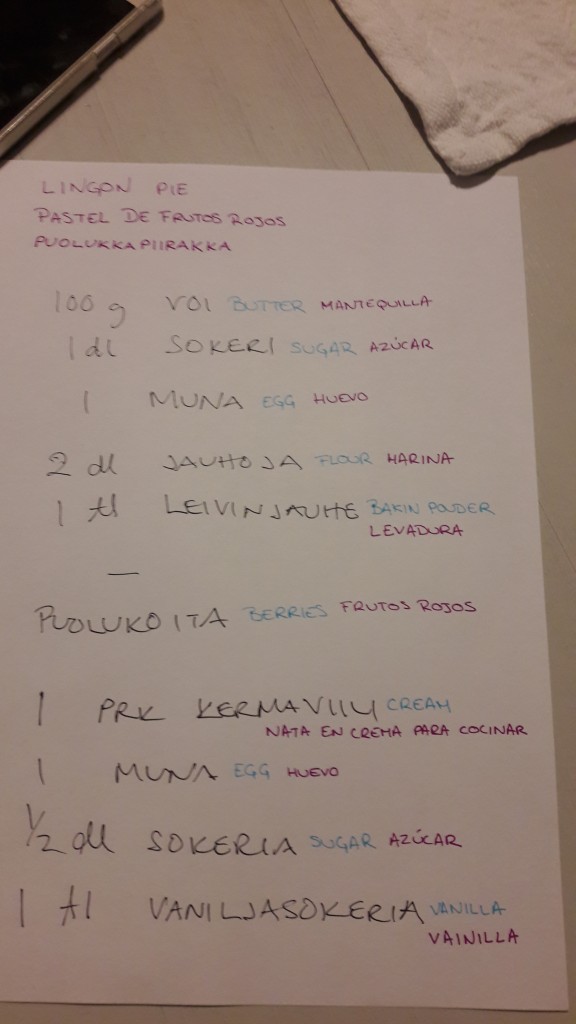 LINGON PIE
PASTEL DE FRUTOS ROJOS
PUOLUKKAPIIRAKKA
100 g VOI BUTTER MANTEQUILLA
1 dl SOKERI SUGAR AZÚCAR
1 MUNA EGG HUEVO
2 dl JAUHOJA FLOUR HARINA
1 tl LEIVINJAUHE BAKIN POUDER
LEVADURA
—
PUOLUKOITA BERRIES FRUTOS ROJOS
1 PRK KERMAVIILI CREAM
NATA EN CREMA PARA COCINAR
1 MUNA EGG HUEVO
1/2 dl SOKERIA SUGAR AZÚCAR
1 tl VANILJASOKERIA VANILLA
VAINILLA